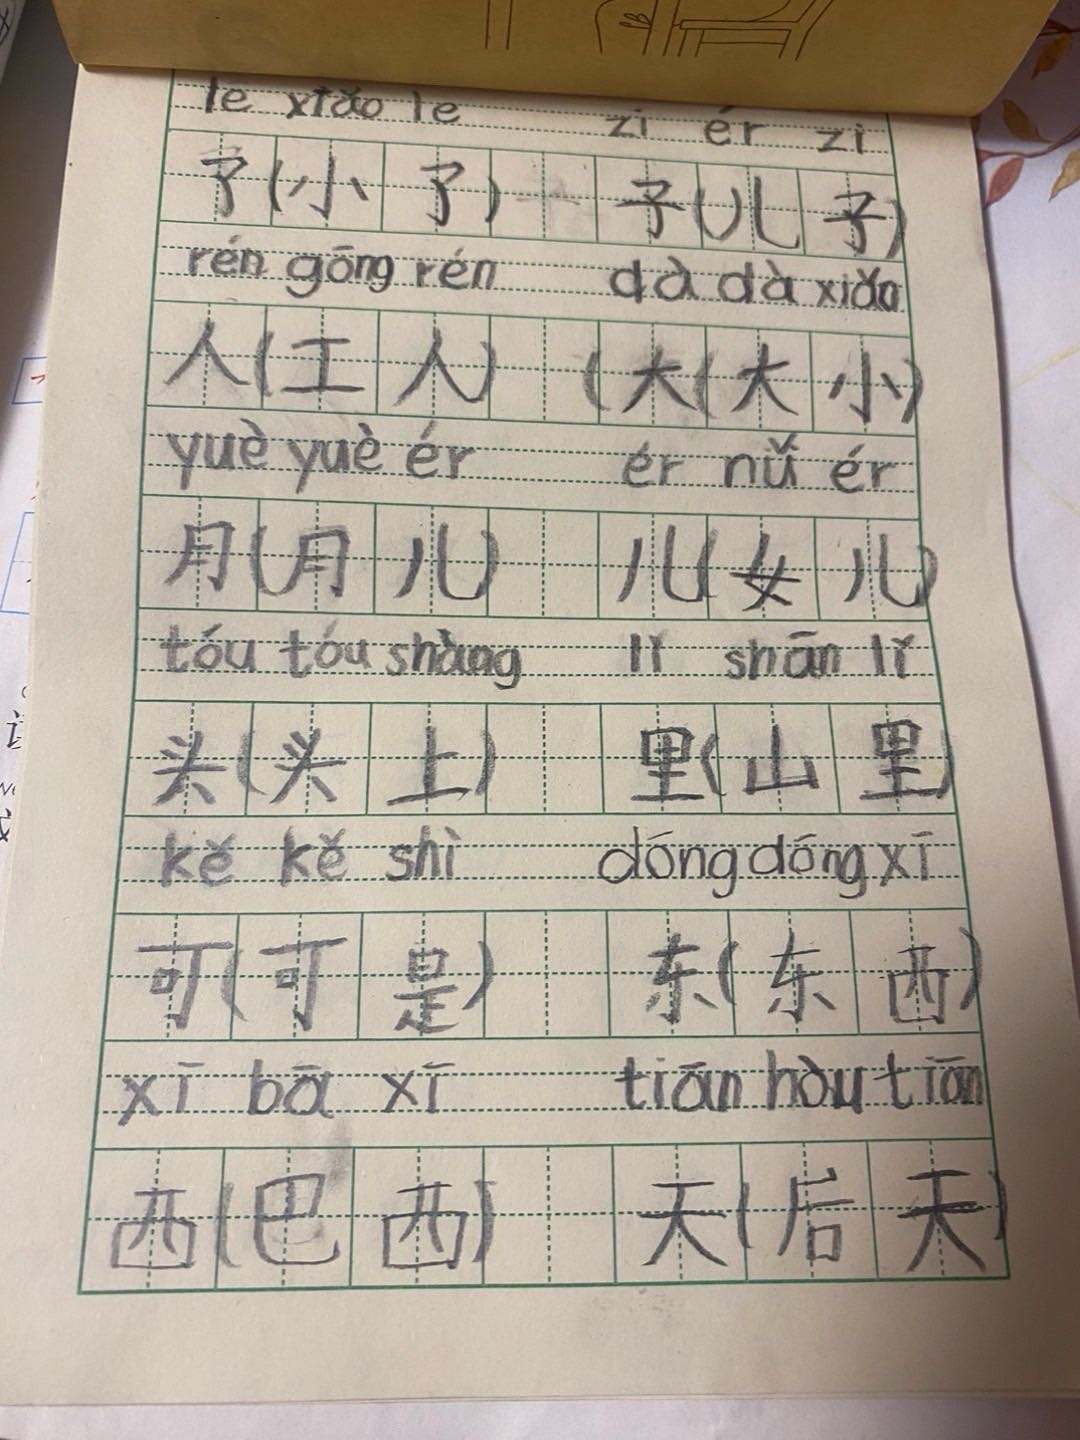 le xiǎo le zi ér zi
了(小了) 子(儿子)
rén gōng rén dà dà xiǎo
人(工人) (大(大小)
yuè yuè ér ér nǚ ér
月(月儿) 儿(女儿)
tóu tóu shàng lǐ shān lǐ
头(头上) 里(山里)
kě kě shì dōng dōng xī
可(可是) 东(东西)
xī bā xī tiān hòu tiān
西(巴西) 天(后天)